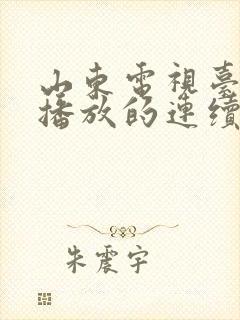 山東電視臺
播放的連續
朱震宇